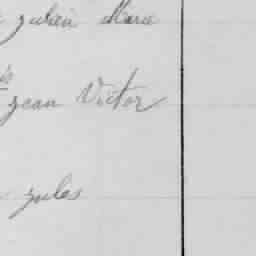 julien Marie
jean Victor
jules